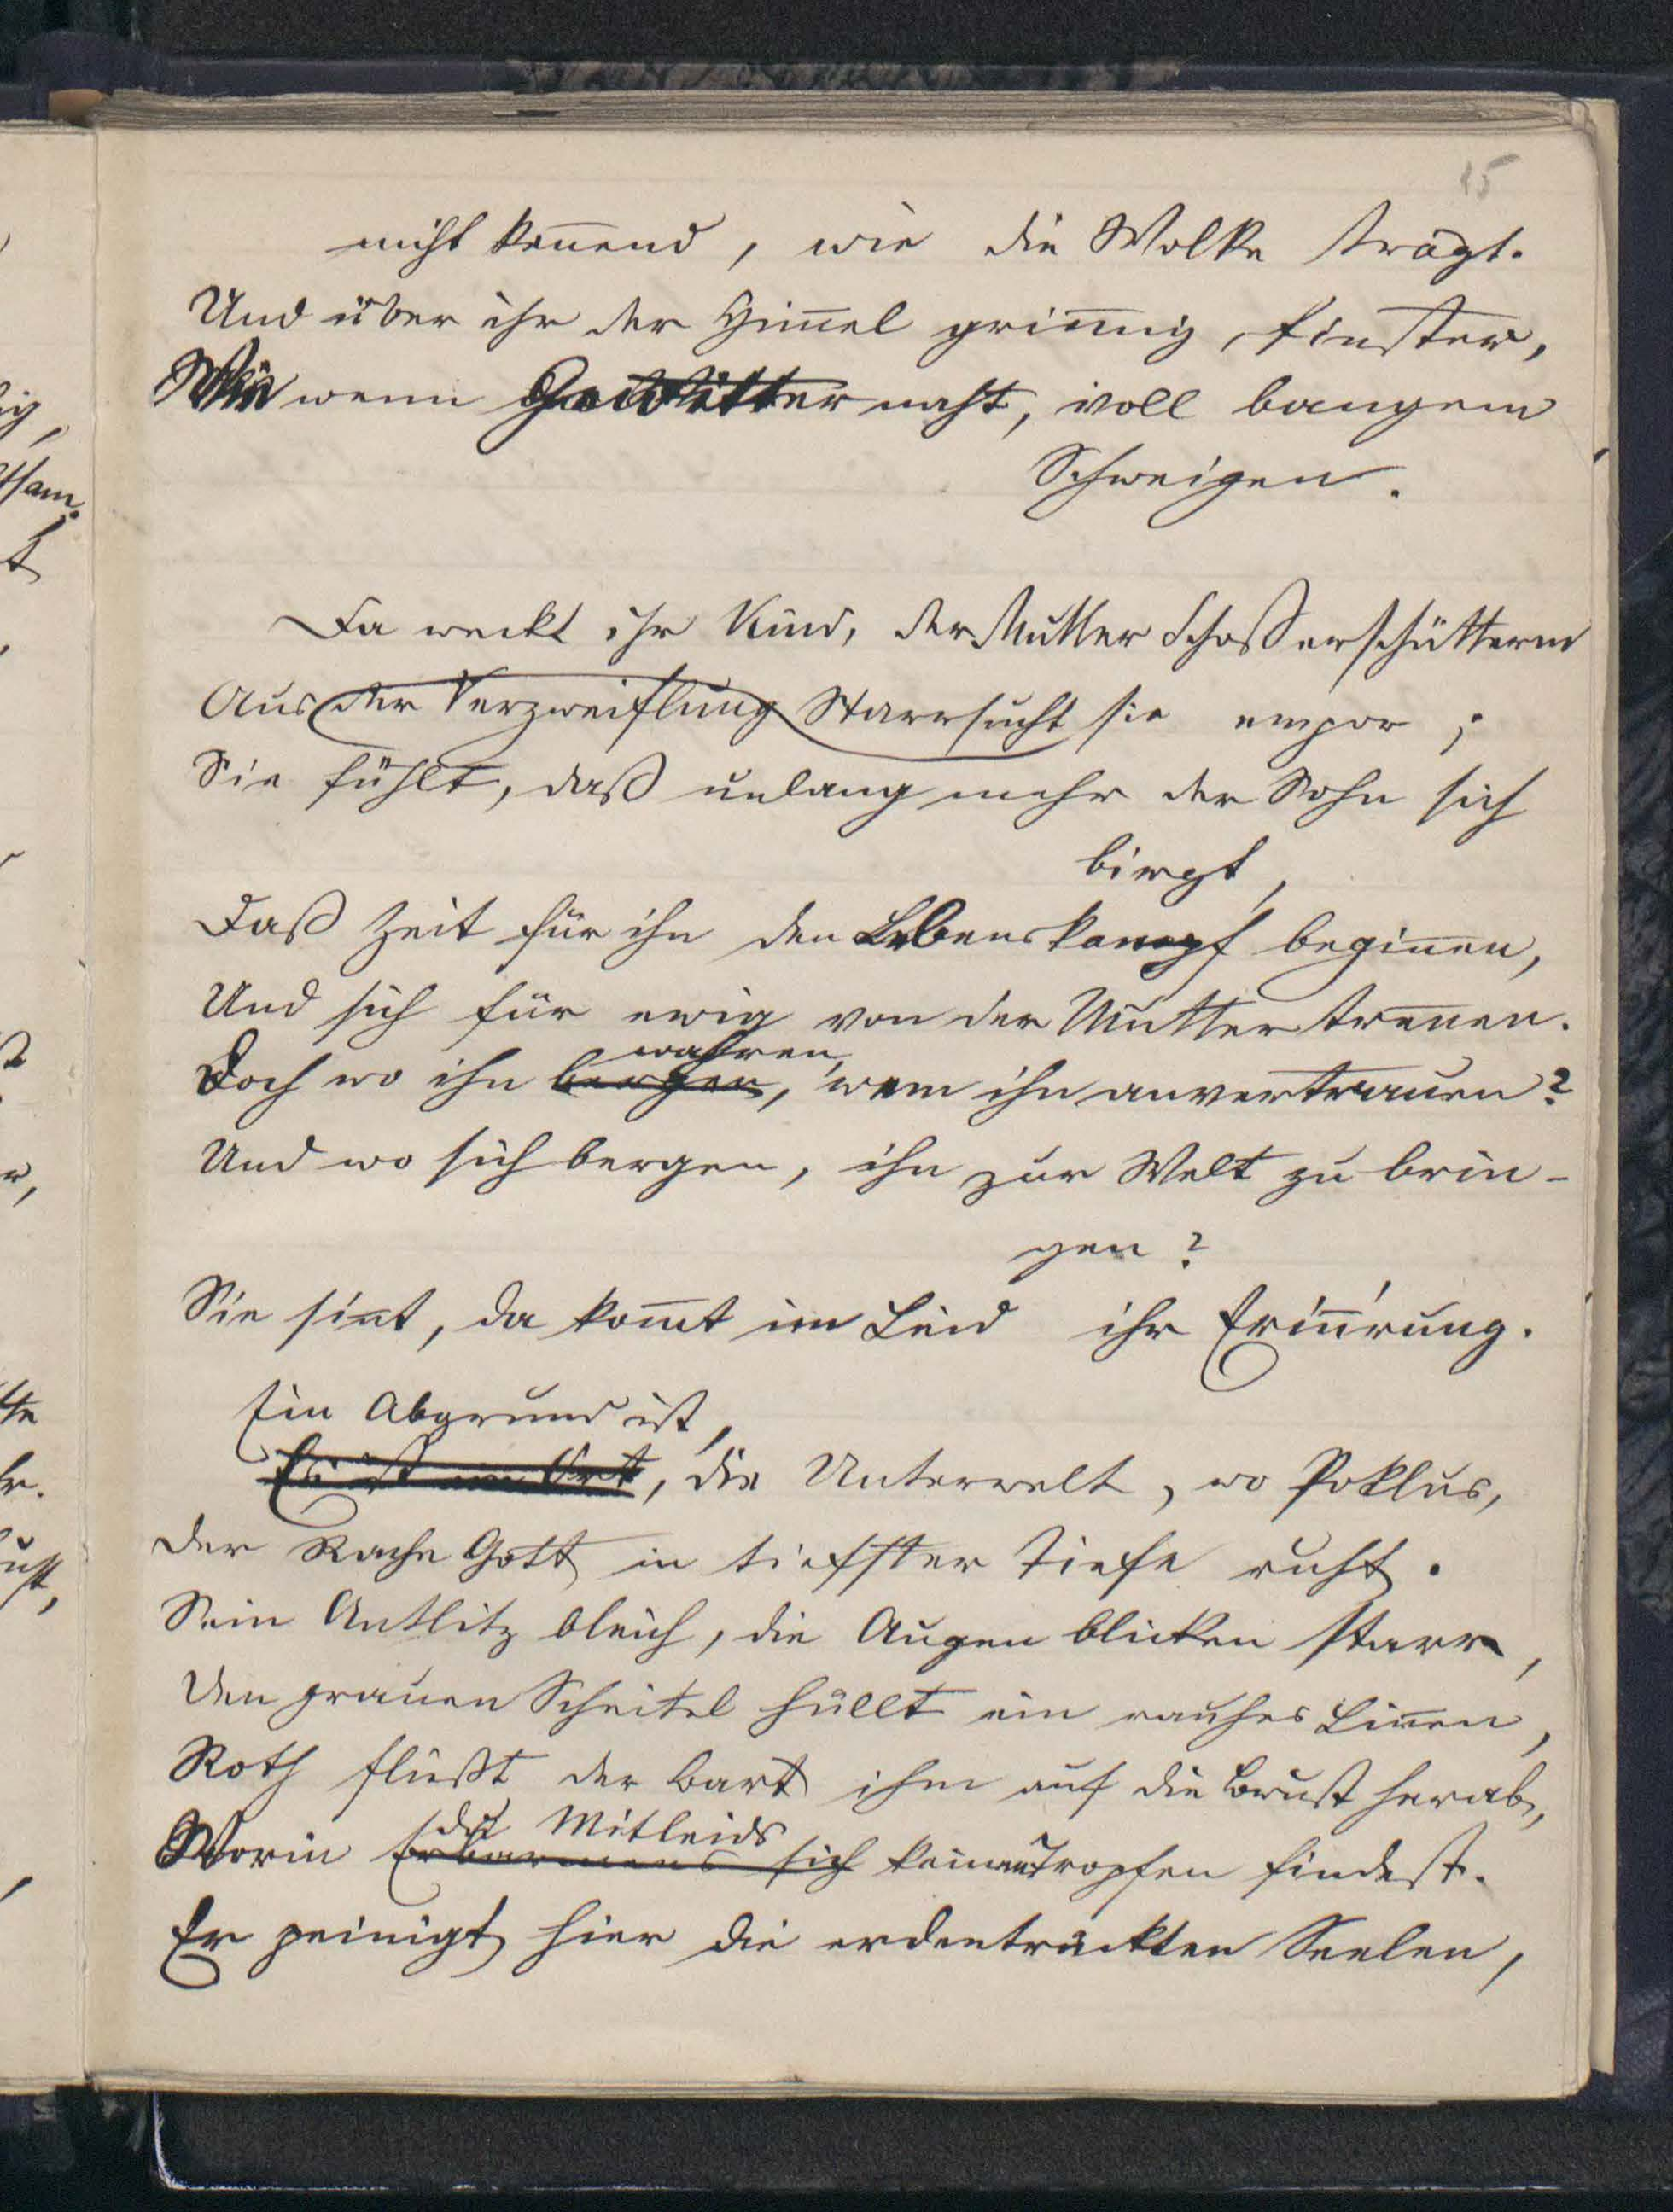 15
nicht kennend, wie die Wolke trägt.
Und über ihr der Him̄el grim̄ig, finster,
Wie wenn Gewitter naht, voll bangem
Schweigen.
Da weckt ihr Kind, der Mutter Schoß erschütternd
Aus der Verzweiflung Starrsucht sie empor;
Sie fühlt, daß unlang mehr der Sohn sich
birgt,
Daß Zeit für ihn den Lebenskampf begin̄en,
Und sich für ewig von der Mutter tren̄en.
wahren,
Doch wo ihn bergen, wem ihn anvertrauen?
Und wo sich bergen, ihn zur Welt zu brin-
gen?
Sie sin̄t, da kom̄t im Leid ihr Erin̄'rung.
Ein Abgrund ist,
Es ist ein Ort, die Unterwelt, wo Poklus,
Der Rache Gott in tiefster Tiefe ruht.
Sein Antlitz bleich, die Augen blicken starr,
Den grauen Scheitel hüllt ein rauhes Lin̄en,
Roth fließt der Bart ihm auf die Brust herab,
du Mitleids
Worin Erbarmens sich keinen Tropfen findest.
Er peinigt hier die erdentrückten Seelen,